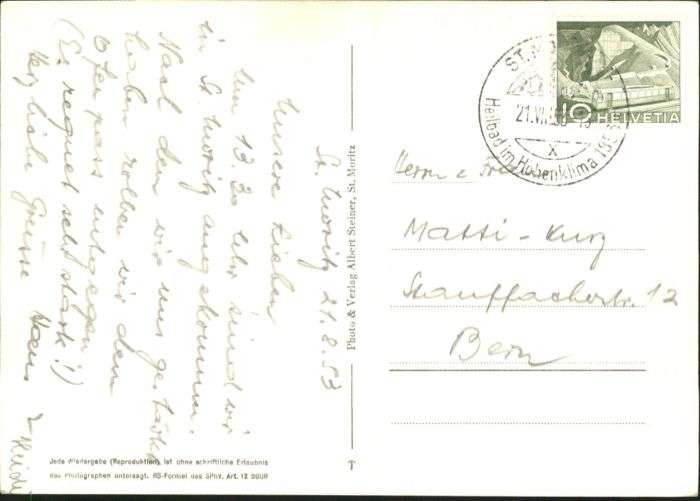 St. Moritz 21.8.53
Unsere Lieben
Um 13.30 Uhr sind wir
in St. Moritz angekommen.
Nach dem wir uns gestärkt
haben rollen wir dem
Ofenpass entgegen
(Es regnet sehr stark!)
Herzliche Grüsse Hans
Heidi
Photo & Verlag Albert Steiner, St. Moritz
Jede Wiedergabe (Reproduktion) ist ohne schriftliche Erlaubnis
des Photographen untersagt. RS-Formel des SPhV, Art. 12 BGUR
ST. MORITZ
21.VIII.53
X
Heilbad im Hohenklima
10 HELVETIA
Herrn & Frau
Matti-Kurz
Stauffacherstr. 12
Bern